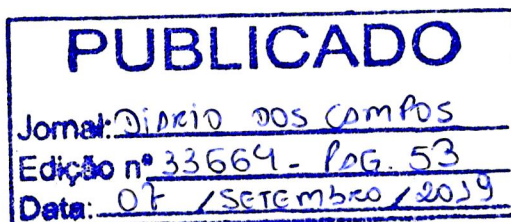 PUBLICADO
Jornal: DIÁRIO DOS CAMPOS
Edição nº 33664 - PAG. 53
Data: 07 / SETEMBRO / 2019